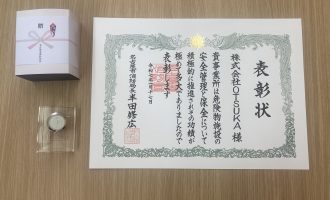 表彰状
株式会社OTSUKA 様
貴事業所は危険物施設の
安全管理と保全について
積極的に推進されその功績が
極めて多大でありましたので
表彰します
名古屋市消防局長 半田修広